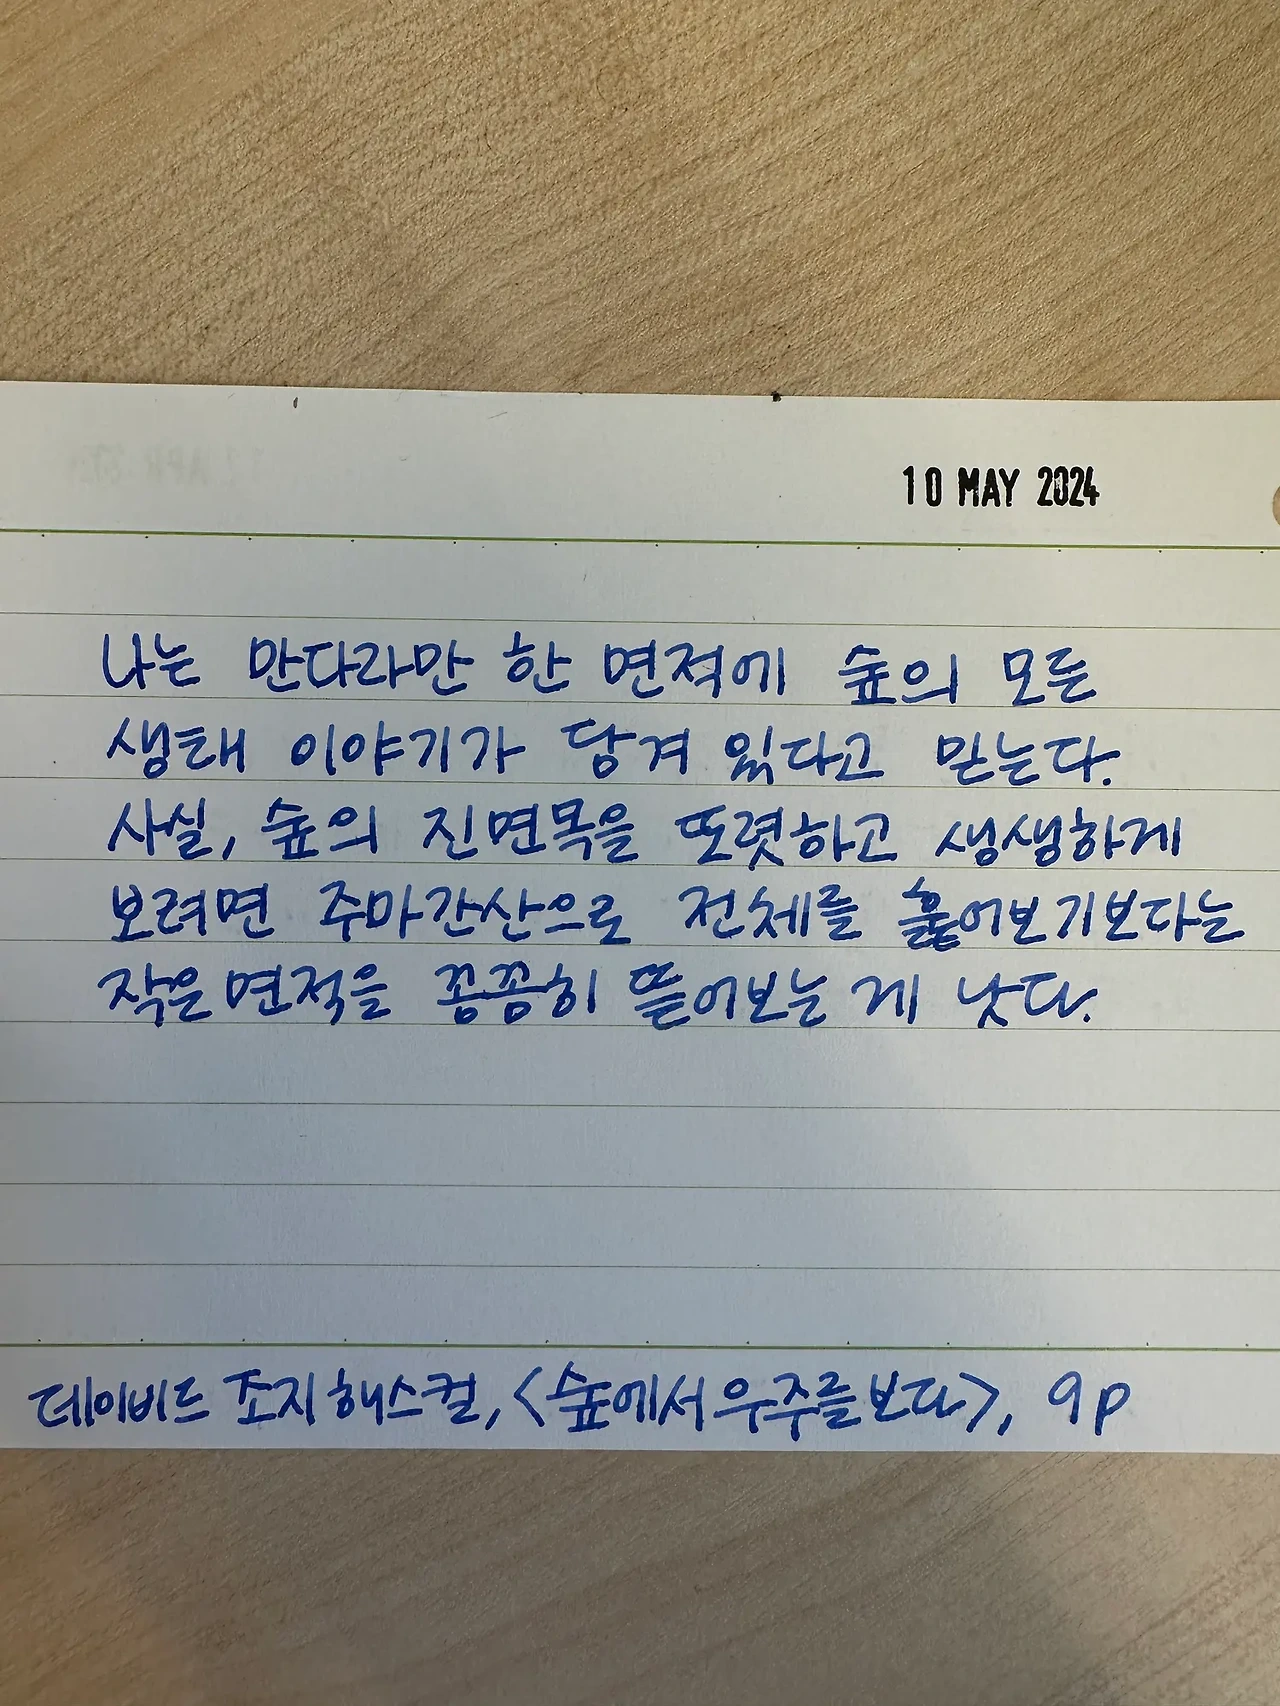 10 MAY 2024
나는 만다라만 한 면적에 숲의 모든
생태 이야기가 담겨 있다고 믿는다.
사실, 숲의 진면목을 또렷하고 생생하게
보려면 주마간산으로 전체를 훑어보기보다는
작은 면적을 꼼꼼히 뜯어보는 게 낫다.
데이비드 조지 해스컬, <숲에서 우주를 보다>, 9p